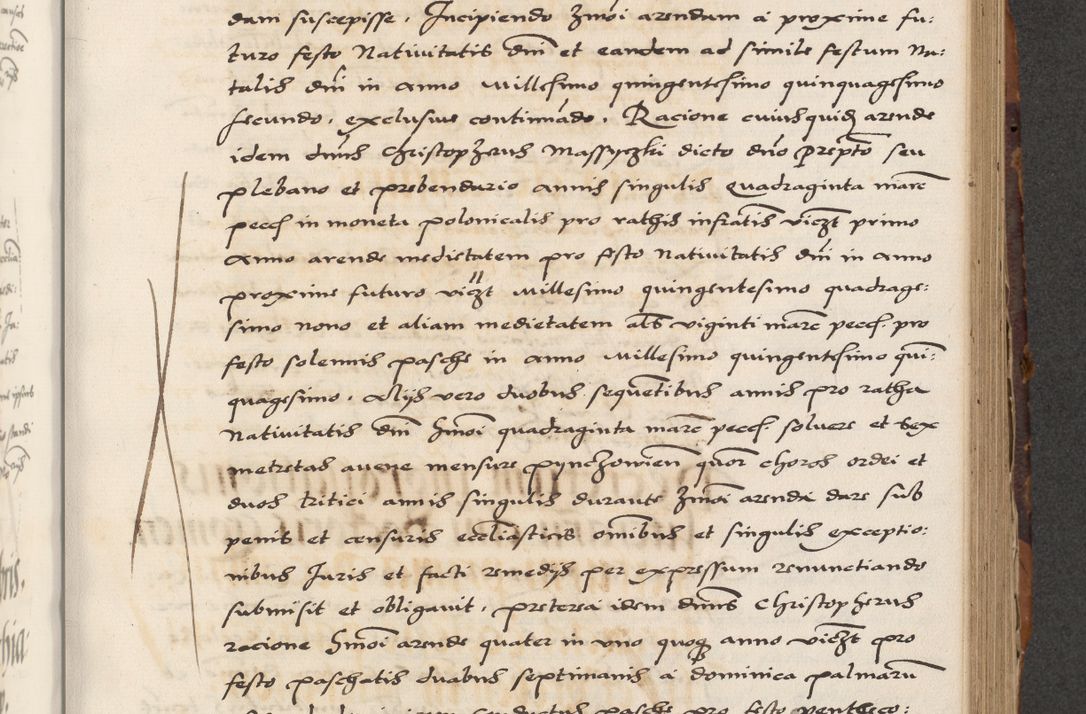 dam suscepisse, Incipiendo hm̄oi arendam a proxime fu:
turo festo Nativitatis dm̄i et eandem ad simile festum Na:
talis dm̄i in anno Millesimo quingentesimo quinquagesimo
secundo, exclusive continuādo, Racione cuiusquidē arende
idem dm̄us Christopherus Massyczki dicto dn̄o prepto seu
plebano et prebendario annis singulis Quadraginta marc
pecc in moneta polonicalis pro rathis infratis viczt primo
Anno arende medietatem pro festo Nativitatis dm̄i in anno
proxime futuro viczt Millesimo quingentesimo quadrage:
simo nono et aliam medietatem als viginti marc pecc pro
festo solennis pasche in anno Millesimo quingentesimo qui:
quagesimo. Alijs vero duobus sequētibus annis pro ratha
Nativitatis dm̄i hm̄oi quadraginta marc pecc solvere et sex
metretas avene mensure pynczowien quor choros ordei et
duos tritici annis singulis durante hm̄oi arenda dare sub
penis et censuris ecclīasticis omībus et singulis exceptio:
nibus Juris et facti remedijs per expressum renunctiando
submisit et obligavit, preterea idem dm̄us Christopherus
racione hm̄oi arende quater in uno quoq anno viczt pro
festo paschatis duabus septimanis a dominica palmarū
pasche pro festo pentheco: